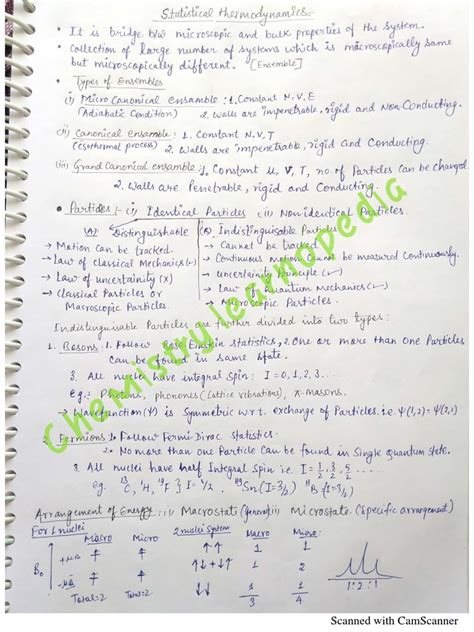 Statistical thermodynamics:-
• It is bridge b/w microscopic and bulk properties of the system.
• collection of large number of systems which is macroscopically same
but microscopically different. [Ensemble]
• Types of Ensembles
(i) Micro Canonical ensamble : 1. Constant N, V, E
(Adiabatic Condition) 2. walls are impenetrable, rigid and Non Conducting.
(ii) Canonical ensamble : 1. Constant N, V, T
(isothermal process) 2. Walls are impenetrable, rigid and Conducting.
(iii) Grand Canonical ensamble : 1. Constant μ, V, T, no. of Particles can be changed.
2. Walls are Penetrable, rigid and Conducting.
• Particles :- (i) Identical Particles (ii) Nonidentical Particles.
(A) Distinguishable (B) Indistinguishable Particles
→ Motion can be tracked. → Cannot be tracked
→ law of classical Mechanics (✓) → Continuous motion Cannot be measured Continuously.
→ Law of uncertainity (X) → uncertainity Principle (✓)
→ Classical Particles or → Law of Quantum Mechanics (✓)
Macroscopic Particles. → Microscopic Particles.
Indistinguisable Particles are further divided into two types:
1. Bosons. 1. Follow Bose Einstein statistics, 2. One or more than one Particles
can be found in same state.
3. All nuclei have integral spin : I = 0, 1, 2, 3...
e.g.:- Photons, phonones (Lattice vibrations), π-masons.
→ Wavefunction (Ψ) is Symmetric w.r.t. exchange of Particles. i.e. Ψ(1,2) = Ψ(2,1)
2. Fermions 1. Follow Fermi Dirac statistics.
2. No more than one Particle Can be found in Single Quantum state.
3. All nuclei have half Integral Spin i.e. I = 1/2, 3/2, 5/2 ....
eg. 13C, 1H, 19F } I = 1/2, 119Sn (I = 3/2) 11B (I = 3/2)
Arrangement of Energy : (i) Macrostat (general) (ii) Microstate. (Specific arrangement)
For 1 nuclei Macro Micro 2 nuclei System Macro Micro :
B0 Total = 2 Total = 2 3 4 1:2:1
Chemistry learnopedia
Scanned with CamScanner